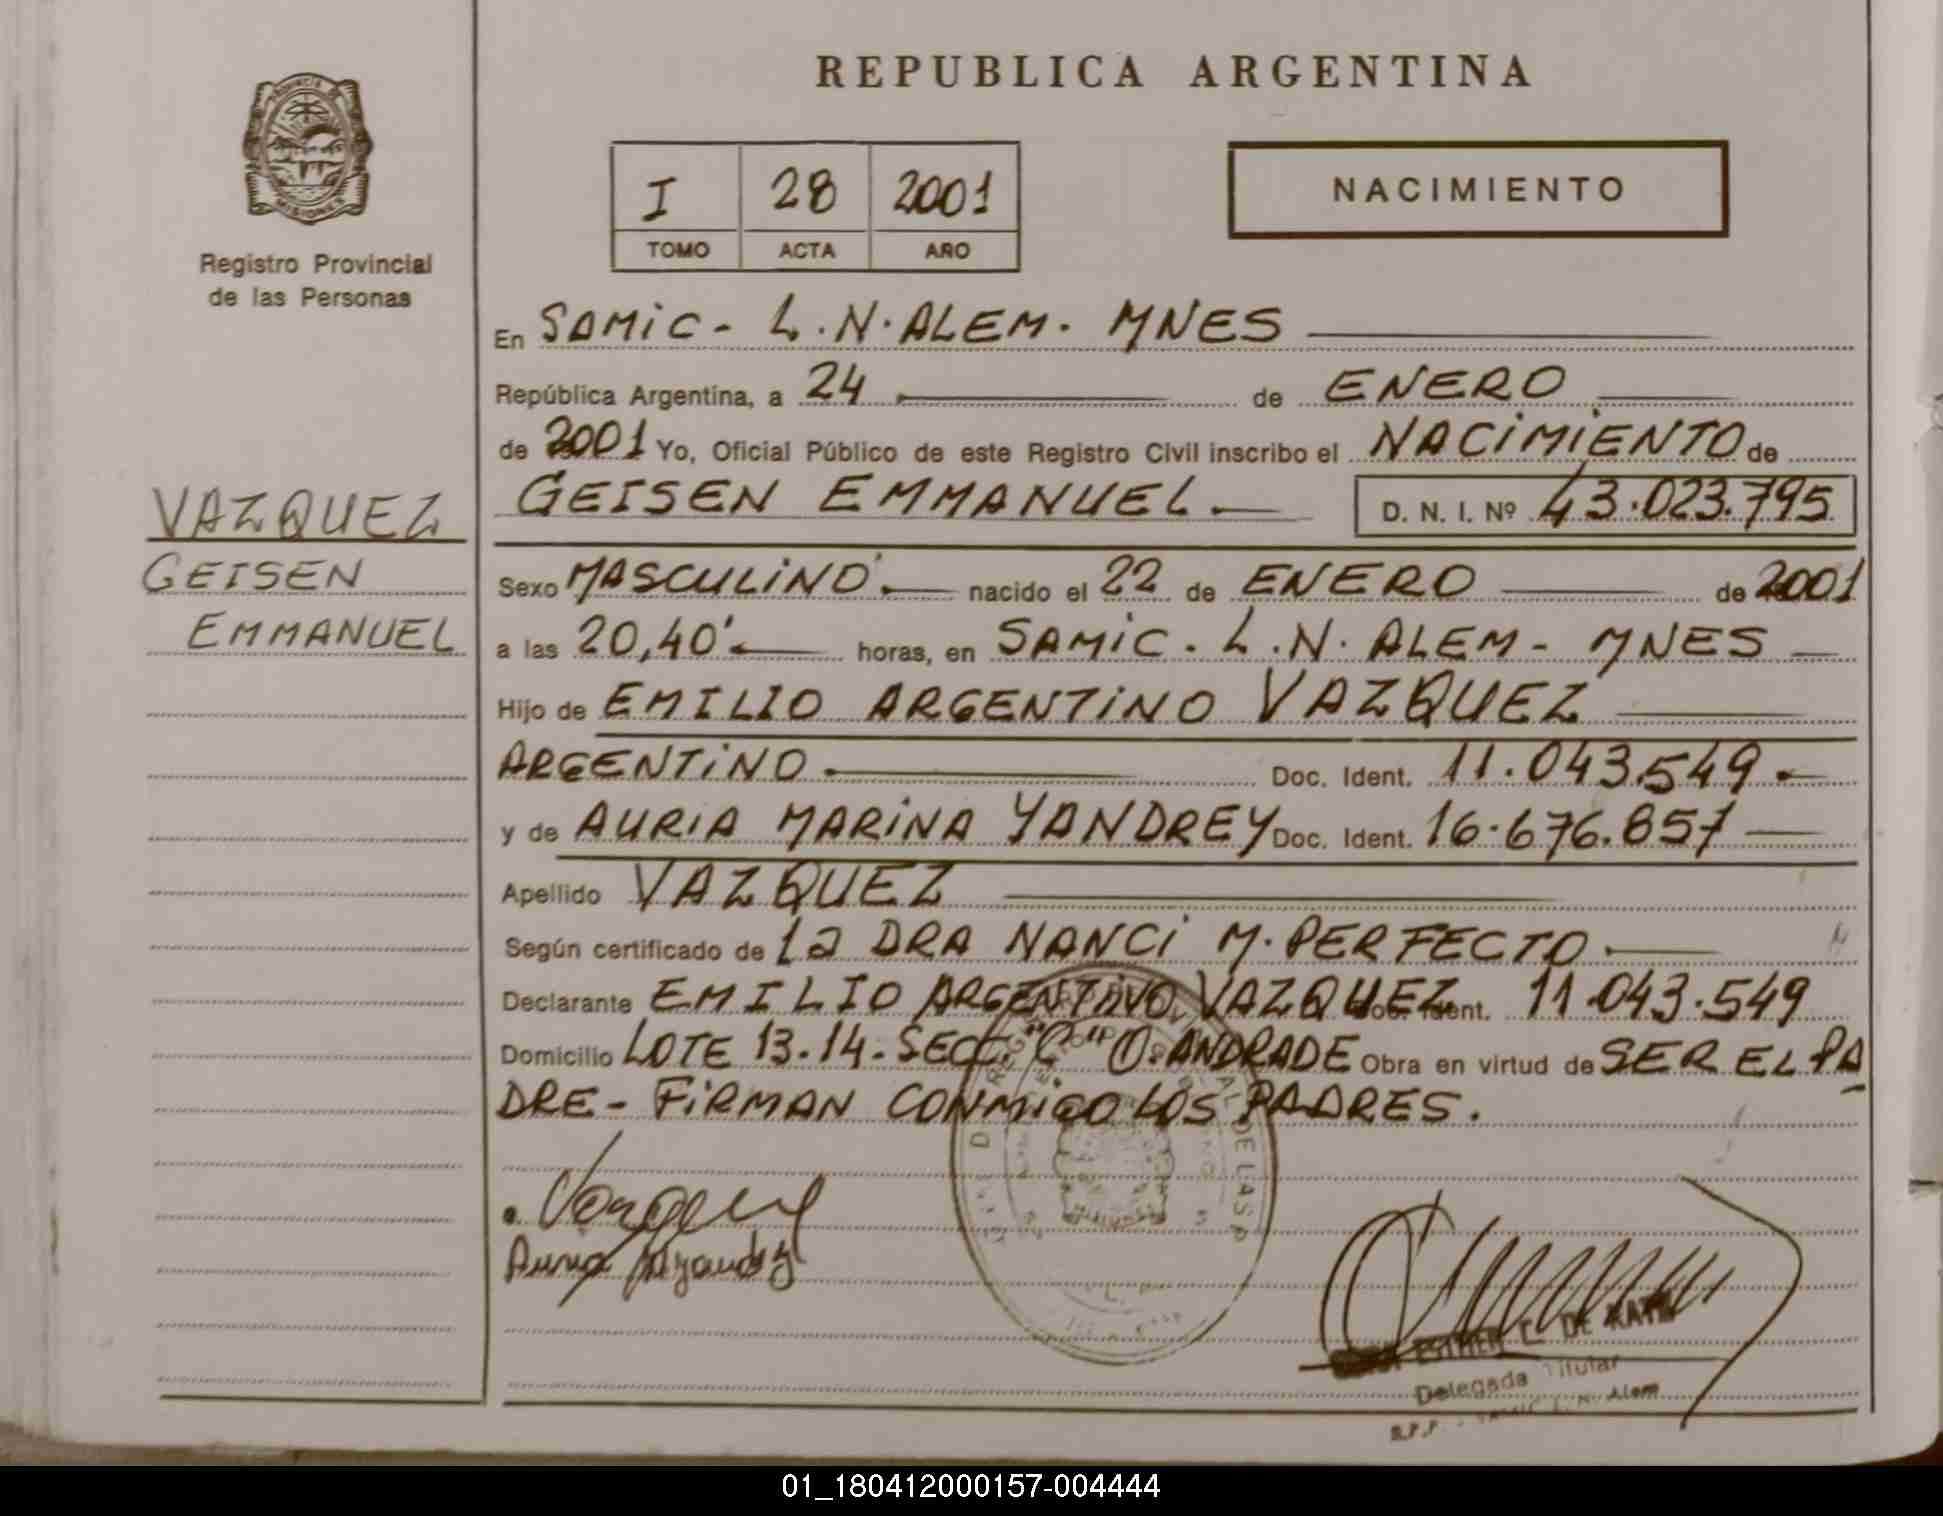 REPUBLICA ARGENTINA
PROVINCIA DE
MISIONES
Registro Provincial
de las Personas
I 28 2001
TOMO ACTA AÑO
NACIMIENTO
En SAMIC - L.N. ALEM. MNES
República Argentina, a 24 de ENERO
de 2001 Yo, Oficial Público de este Registro Civil inscribo el NACIMIENTO de
GEISEN EMMANUEL.— D. N. I. Nº 43.023.795
VAZQUEZ
GEISEN
EMMANUEL
Sexo MASCULINO.— nacido el 22 de ENERO de 2001
a las 20,40' horas, en SAMIC. L.N. ALEM - MNES
Hijo de EMILIO ARGENTINO VAZQUEZ
ARGENTINO Doc. Ident. 11.043.549.
y de AURIA MARINA YANDREY Doc. Ident. 16.676.857
Apellido VAZQUEZ
Según certificado de La DRA NANCI M. PERFECTO.
Declarante EMILIO ARGENTINO VAZQUEZ Doc. Ident. 11.043.549
Domicilio LOTE 13.14. SECC. "C" O. ANDRADE Obra en virtud de SER EL PA
DRE - FIRMAN CONMIGO LOS PADRES.
ESTHER DE
Delegada Titular
L. N. Alem
01_180412000157-004444